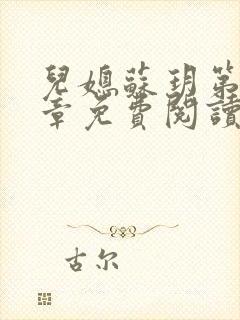 兒媳蘇玥第
章免費閱讀
古尔